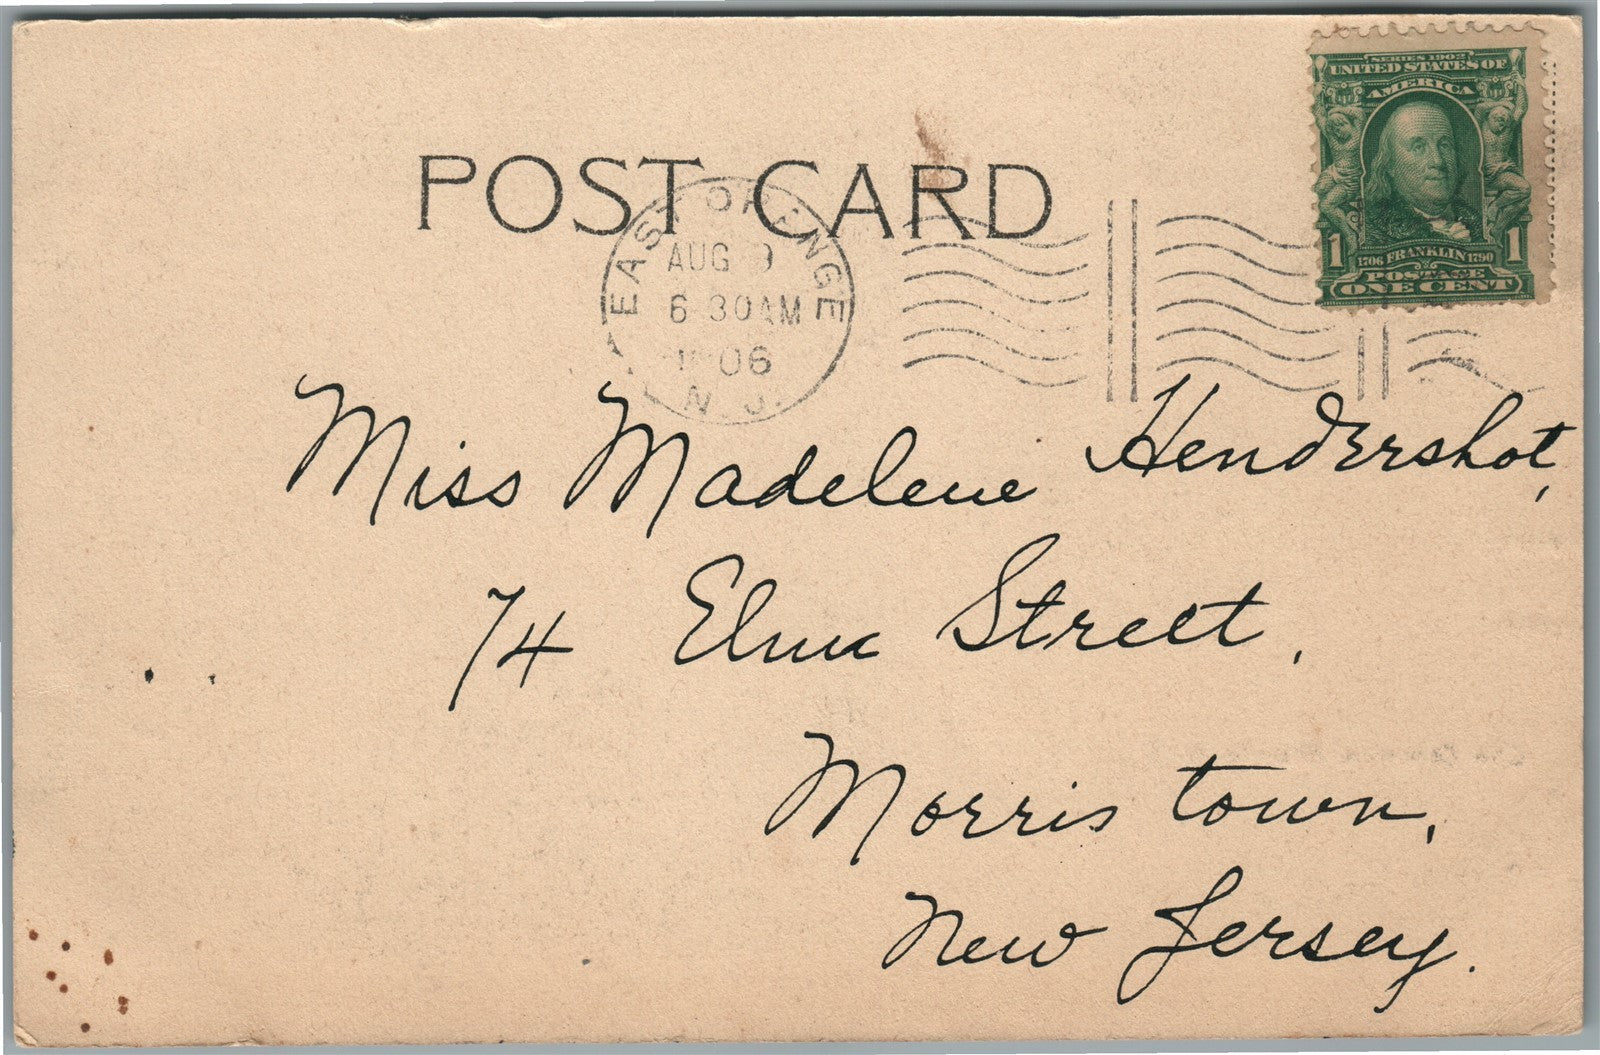 POST CARD
SERIES 1902
UNITED STATES OF
AMERICA
1 1706 FRANKLIN 1790 1
POSTAGE
ONE CENT
EAST ORANGE
AUG 9
6 30 AM
1906
N.J.
Miss Madelene Hendershot,
74 Elm Street,
Morristown,
New Jersey.